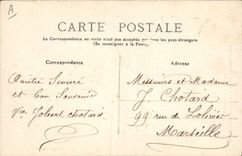 A
CARTE POSTALE
La Correspondance au recto n'est pas acceptée par tous les pays étrangers
(Se renseigner à la Poste).
Correspondance
Adresse
Amitié Sincère
et bon Souvenir
Vve Jobert Chotard
Messieurs et Madame
J. Chotard
99 rue de Lolivier
Marseille